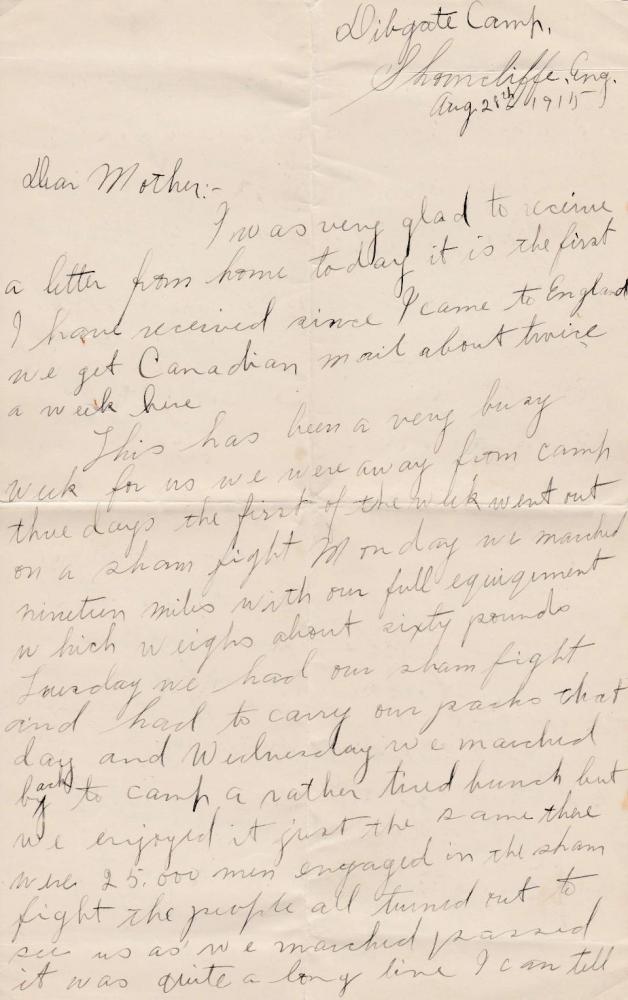 Dibgate Camp,
Shorncliffe. Eng.
Aug. 28th 1915
Dear Mother:-
I was very glad to receive
a letter from home today it is the first
I have received since I came to England
we get Canadian mail about twice
a week here
This has been a very busy
week for us we were away from camp
three days the first of the week went out
on a sham fight Monday we marched
nineteen miles with our full equigement
which weighs about sixty pounds
Tuesday we had our sham fight
and had to carry our packs that
day and Wednesday we marched
back to camp a rather tired bunch but
we enjoyed it just the same there
were 25.000 men engaged in the sham
fight the people all turned out to
see us as we marched passed
it was quite a long line I can tell